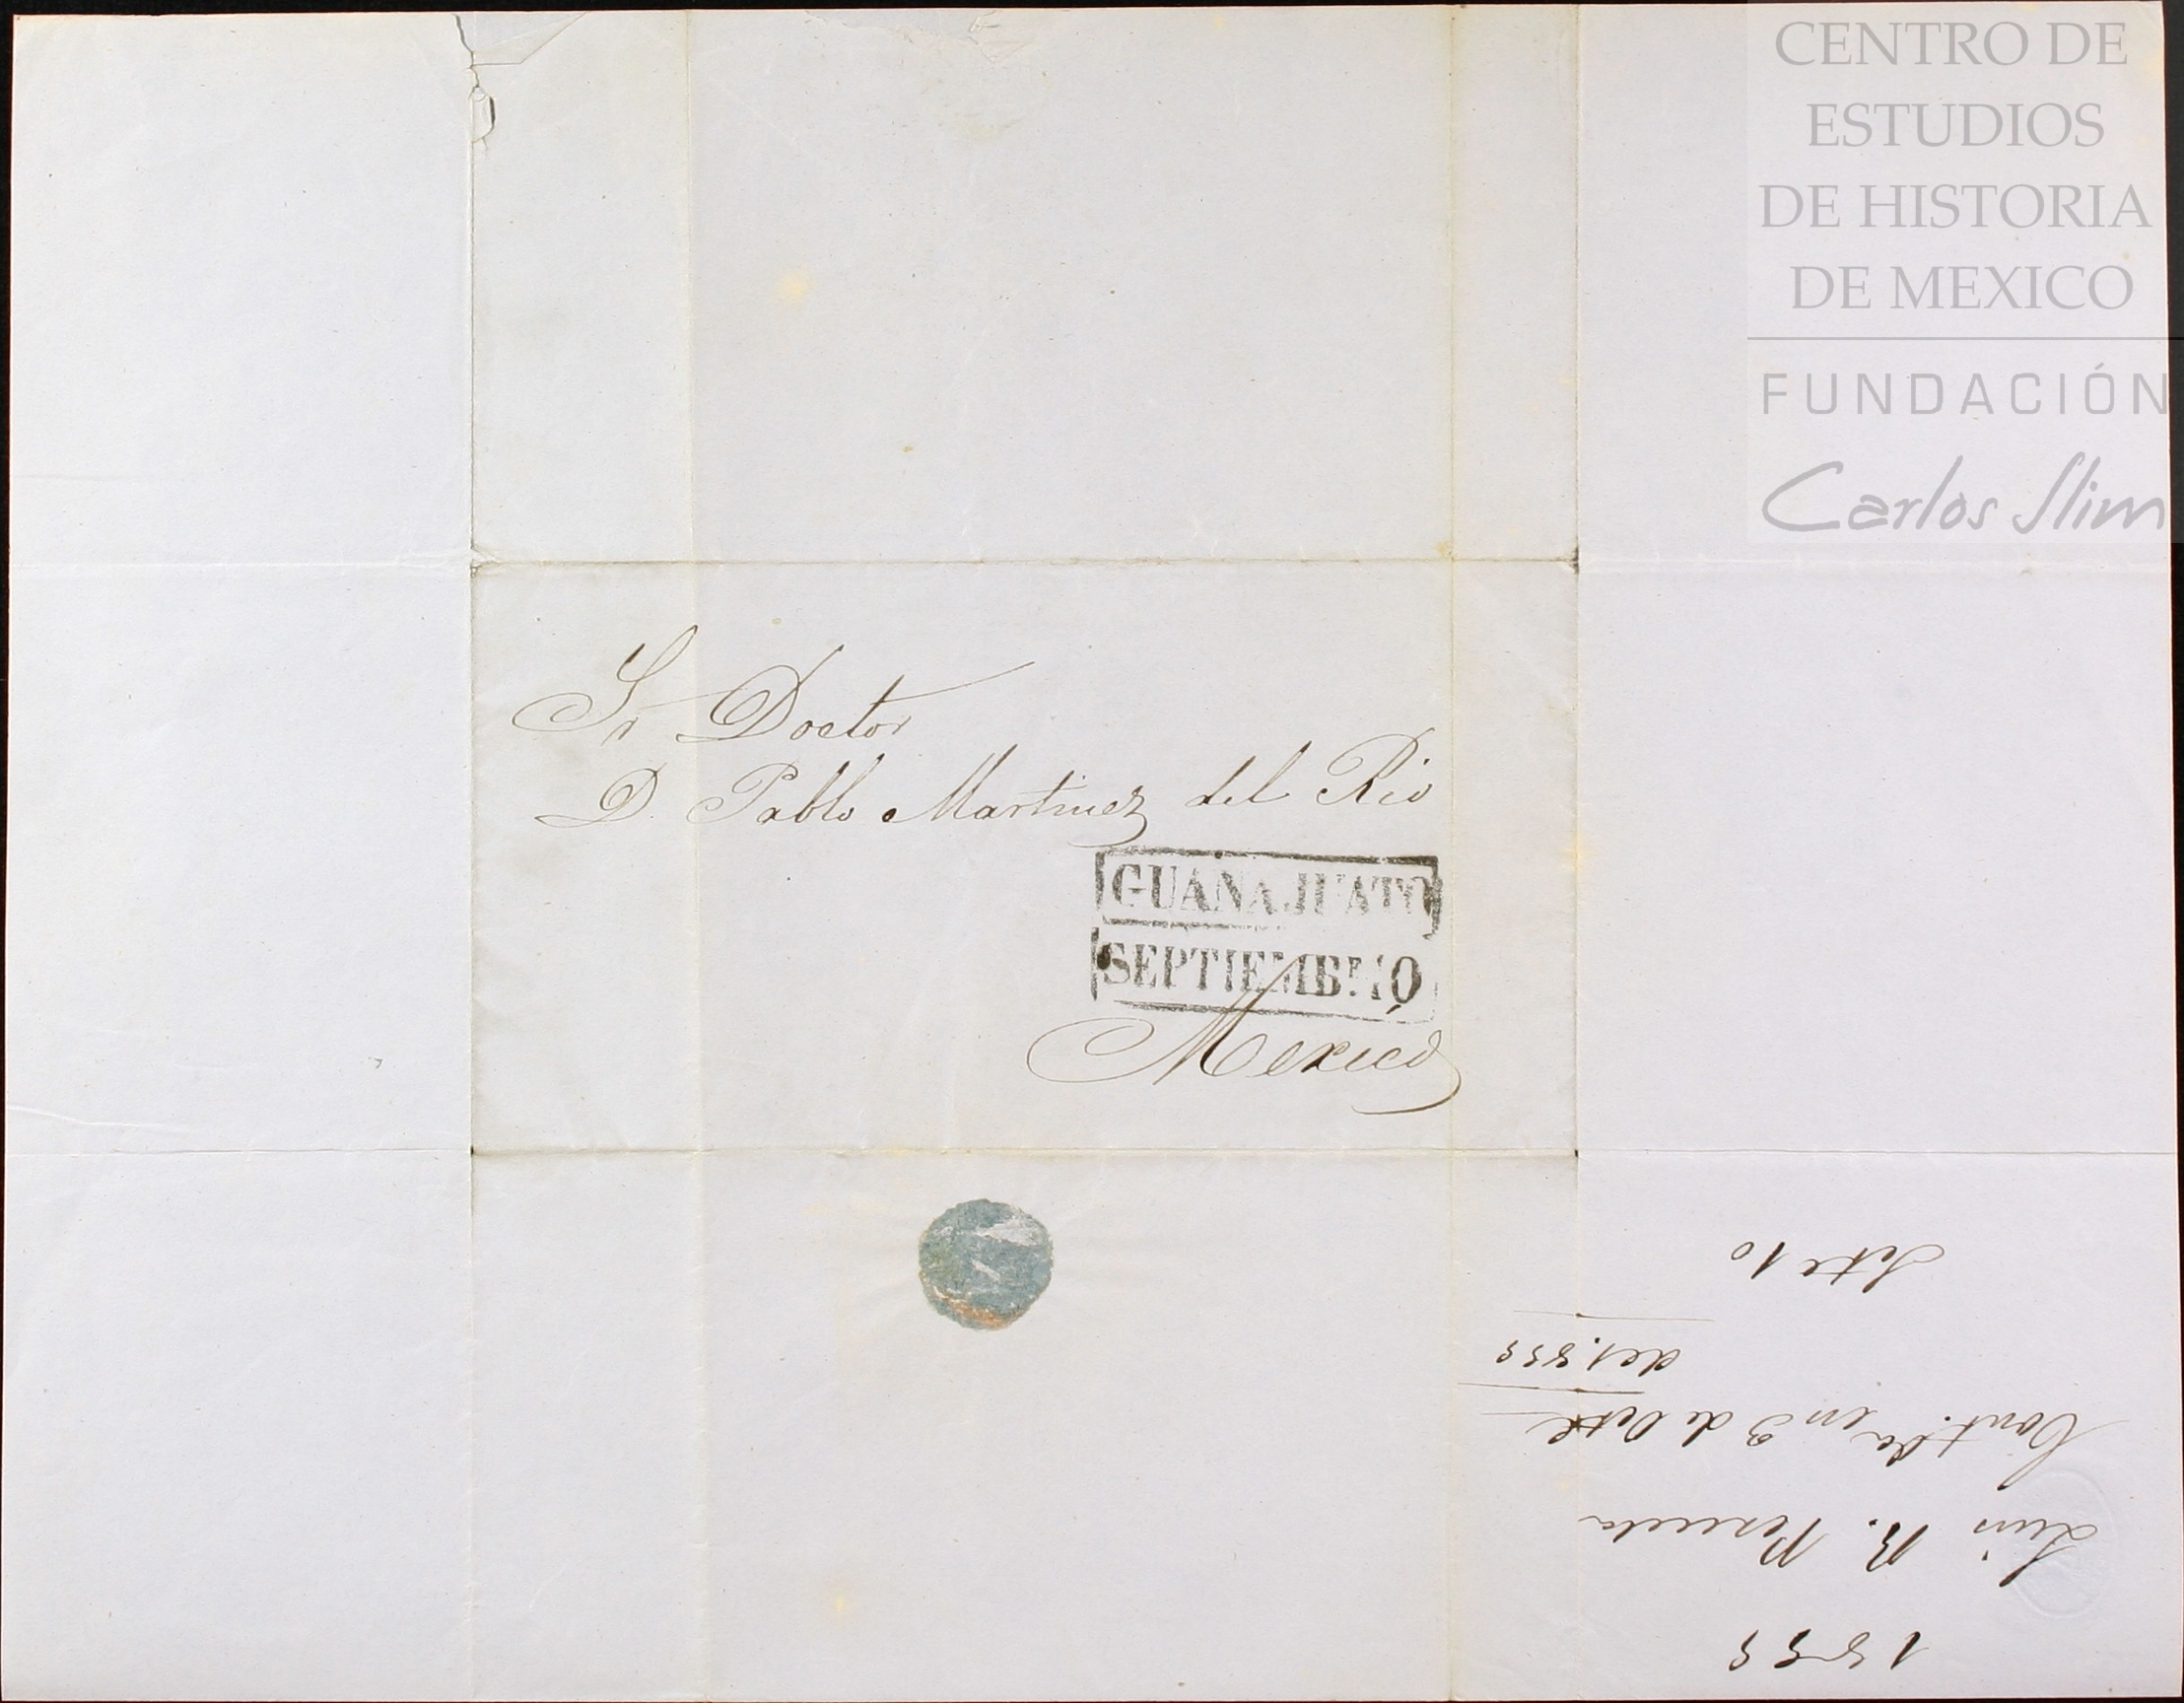 CENTRO DE
ESTUDIOS
DE HISTORIA
DE MEXICO
FUNDACIÓN
Carlos Slim
Sr Doctor
D. Pablo Martinez del Rio
GUANAJUATO
SEPTIEMB 10
Mexico
1855
Luis R.
Cont. en 3 de
de 1.855
10